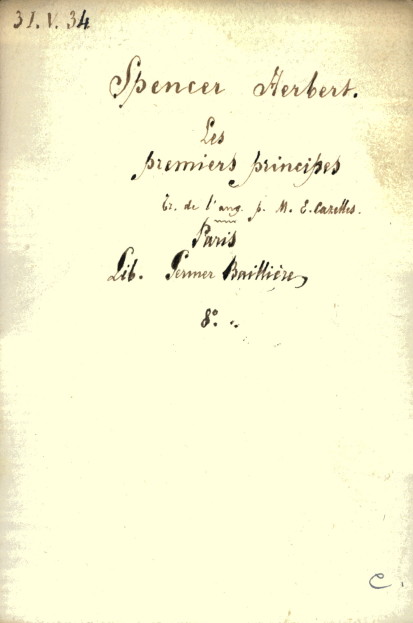 31.V.34
Spencer Herbert.
Les
premiers principes
Tr. de l'ang. p. M. E. Cazelles.
Paris
Lib. Germer Baillière,
8º.
C.